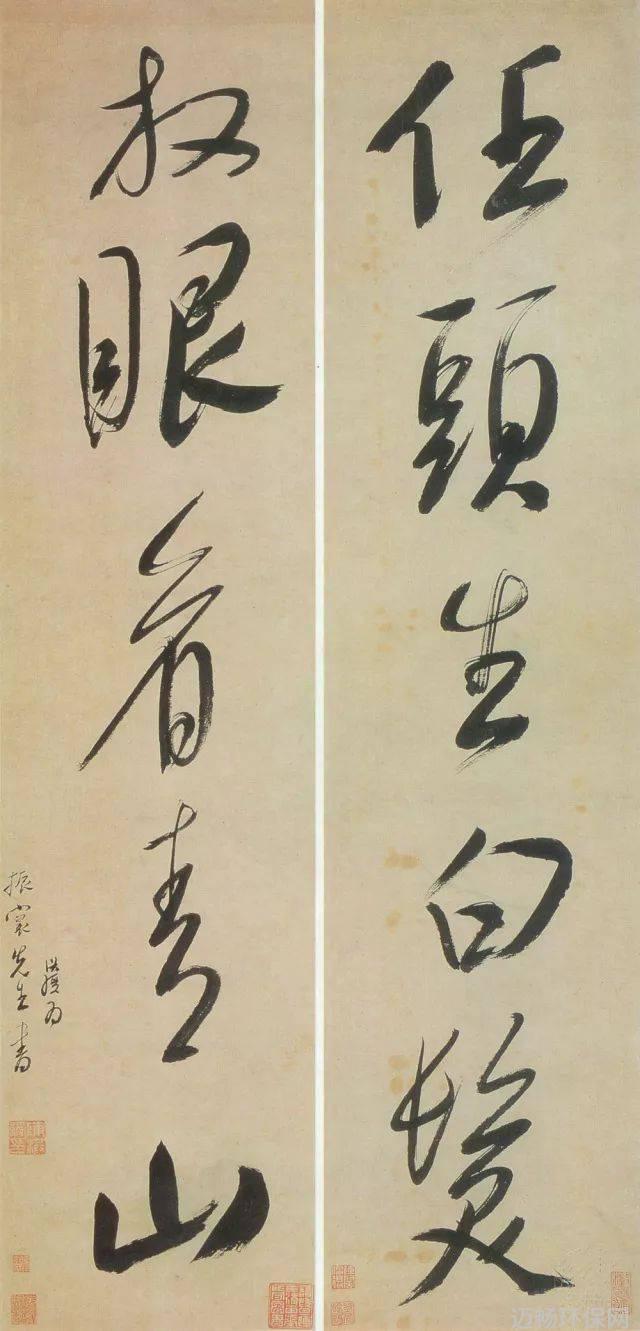 任頭生白髮
放眼看青山
洪綬為
振裳先生書
迈畅环保网